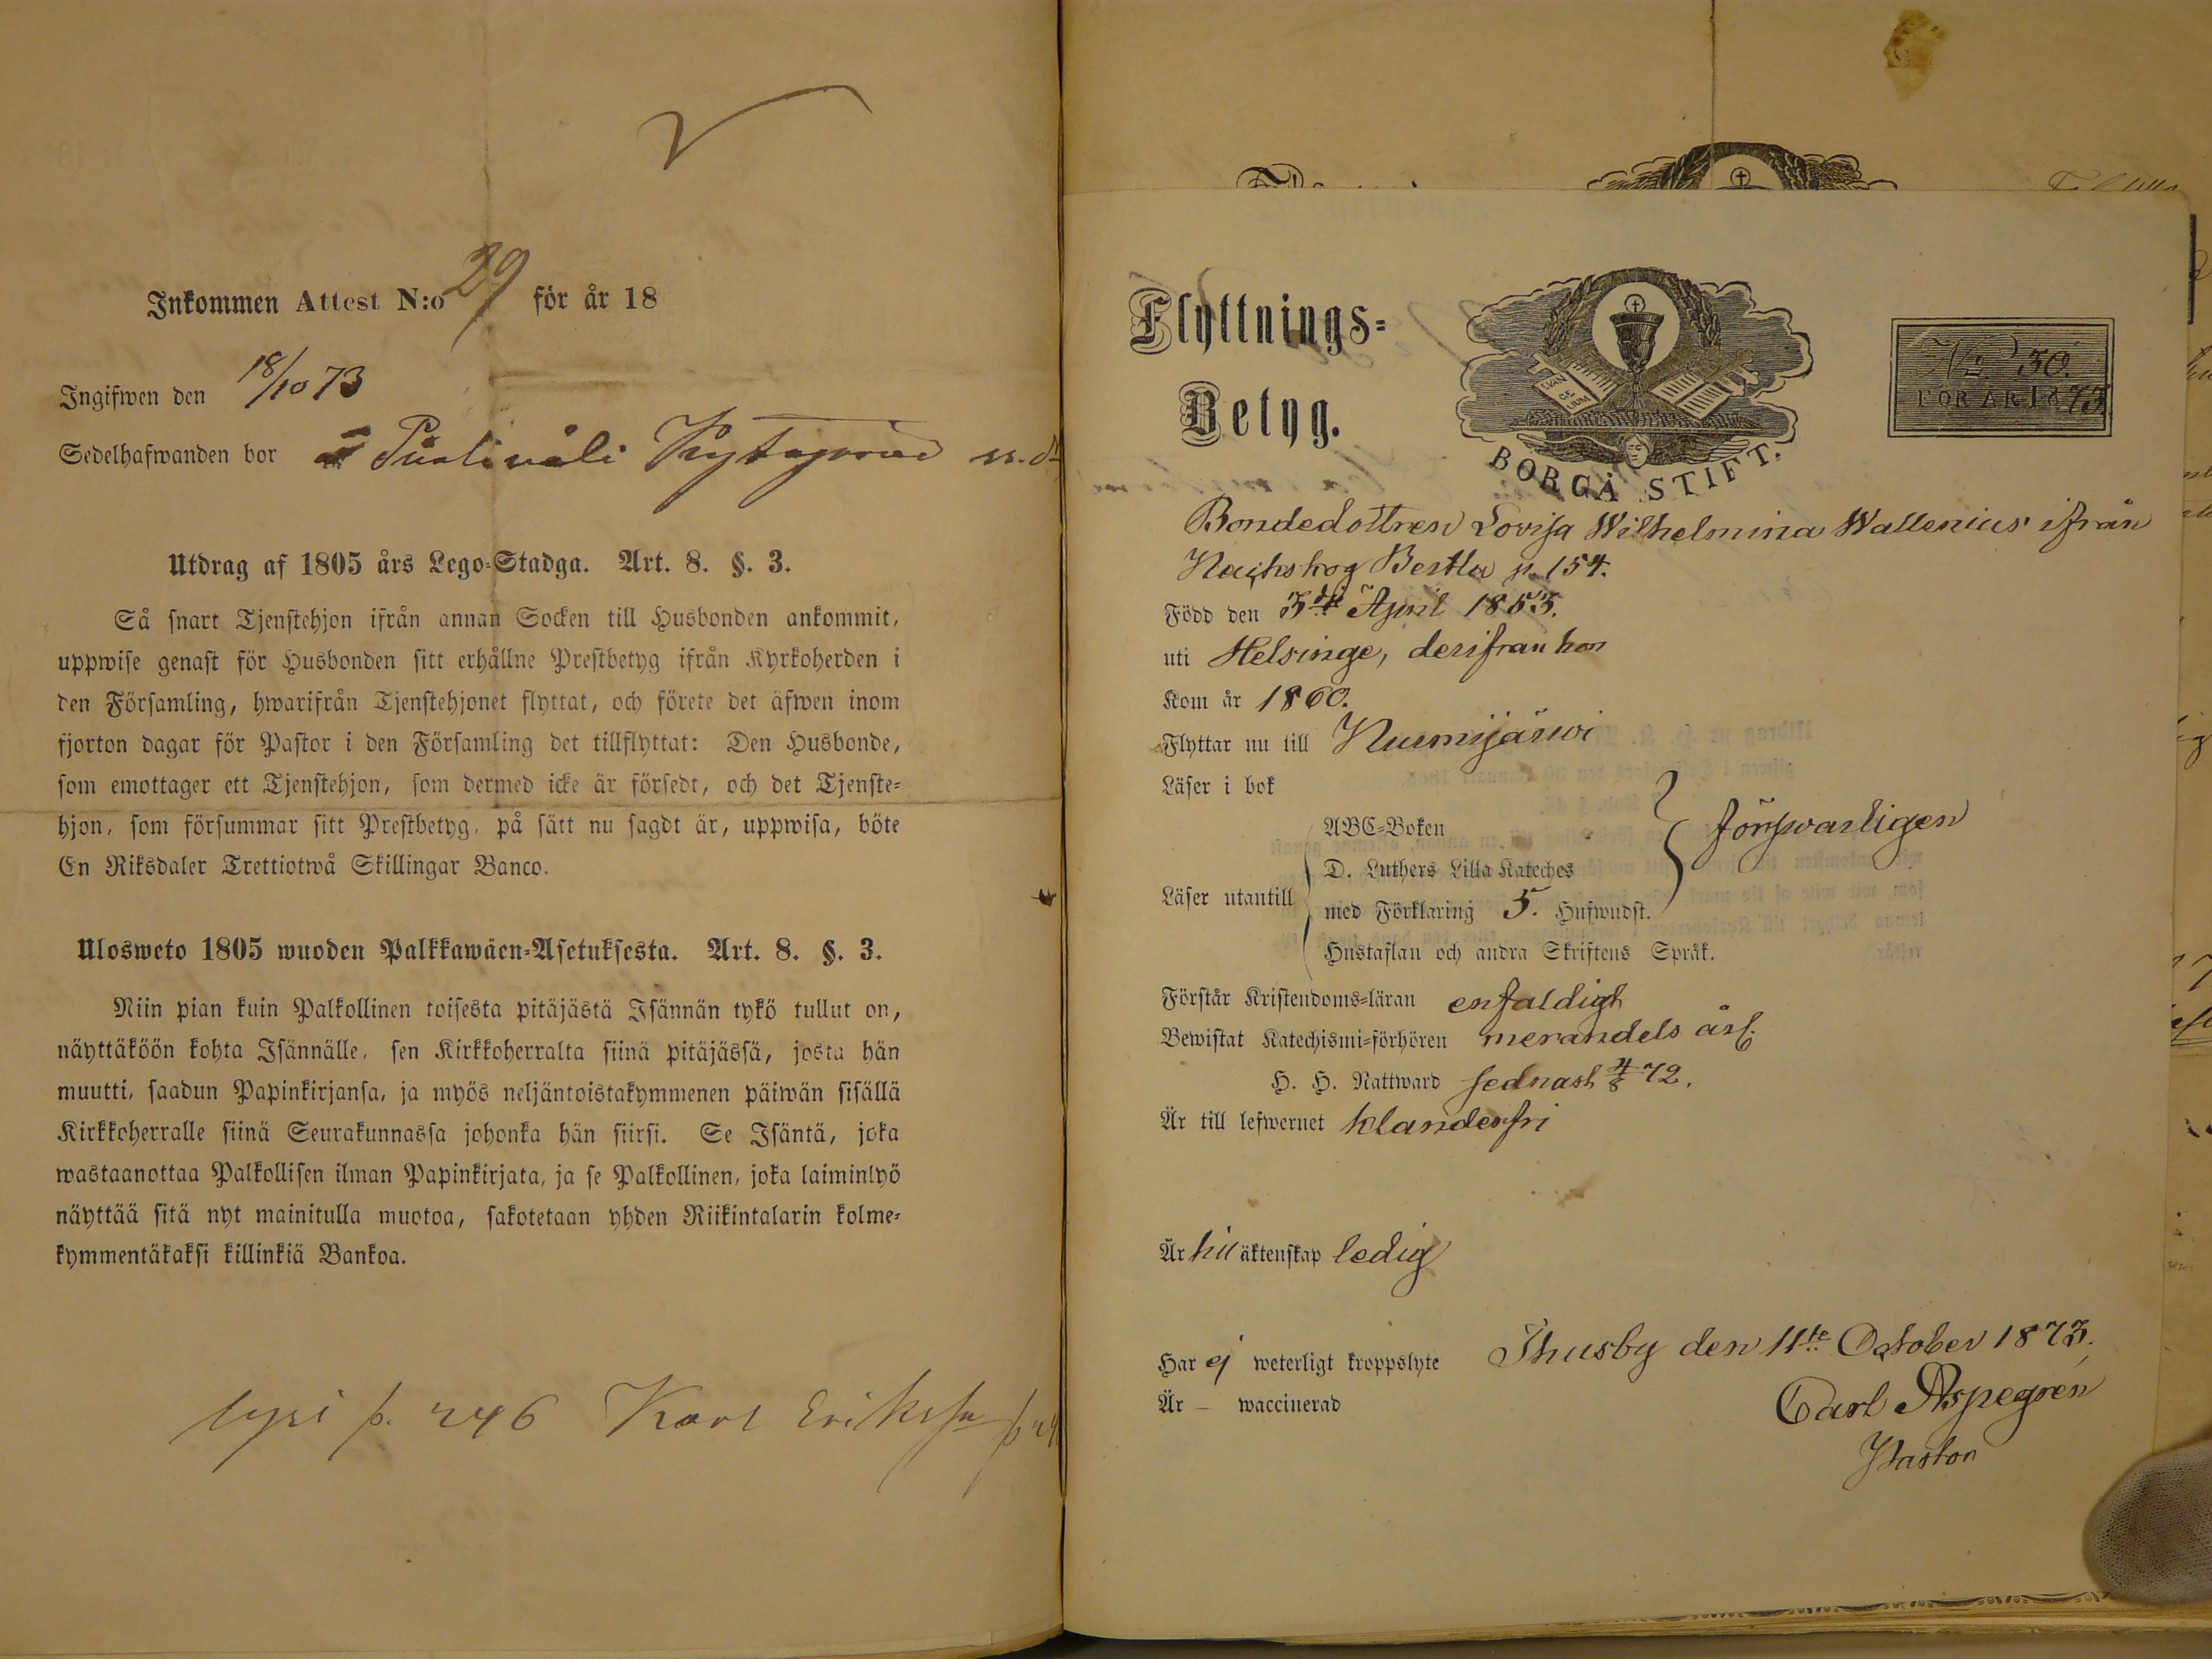 Inkommen Attest N:o 29 för år 18
Ingifwen den 18/10 73
Sedelhafwanden bor
Utdrag af 1805 års Lego-Stadga. Art. 8. §. 3.
Så snart Tjenstehjon ifrån annan Socken till Husbonden ankommit,
uppwise genast för Husbonden sitt erhållne Prestbetyg ifrån Kyrkoherden i
den Församling, hwarifrån Tjenstehjonet flyttat, och förete det äfwen inom
fjorton dagar för Pastor i den Församling det tillflyttat: Den Husbonde,
som emottager ett Tjenstehjon, som dermed icke är försedt, och det Tjenste-
hjon, som försummar sitt Prestbetyg, på sätt nu sagdt är, uppwisa, böte
En Riksdaler Trettiotwå Skillingar Banco.
Ulosweto 1805 wuoden Palkkawäen-Asetuksesta. Art. 8. §. 3.
Niin pian kuin Palkollinen toisesta pitäjästä Isännän tykö tullut on,
näyttäköön kohta Isännälle, sen Kirkkoherralta siinä pitäjässä, josta hän
muutti, saadun Papinkirjansa, ja myös neljäntoistakymmenen päiwän sisällä
Kirkkoherralle siinä Seurakunnassa johonka hän siirsi. Se Isäntä, joka
wastaanottaa Palkollisen ilman Papinkirjata, ja se Palkollinen, joka laiminlyö
näyttää sitä nyt mainitulla muotoa, sakotetaan yhden Riikintalarin kolme-
kymmentäkaksi killinkiä Bankoa.
p. 246 Karl Eriksson
Flyttnings-
Betyg.
EVAN
GE
LIUM
BORGÅ STIFT.
No 50.
FÖR ÅR 1873
Bondedottren Lovisa Wilhelmina Wallenius ifrån
Bertla p. 154.
Född den April 1853.
uti Helsinge, derifrån hon
Kom år 1860.
Flyttar nu till Nurmijärwi
Läser i bok
ABC-Boken
D. Luthers Lilla Kateches
försvarligen
Läser utantill
med Förklaring 5. Hufwudst.
Hustaflan och andra Skriftens Språk.
Förstår Kristendoms-läran enfaldigt
Bewistat Katechismi-förhören merandels årl.
H. H. Nattward sednast 4/8 72.
Är till lefwernet klanderfri
Är till äktenskap ledig
Har ej weterligt kroppslyte
Thusby den 11te October 1873.
Är — waccinerad
Carl Aspegren
Pastor